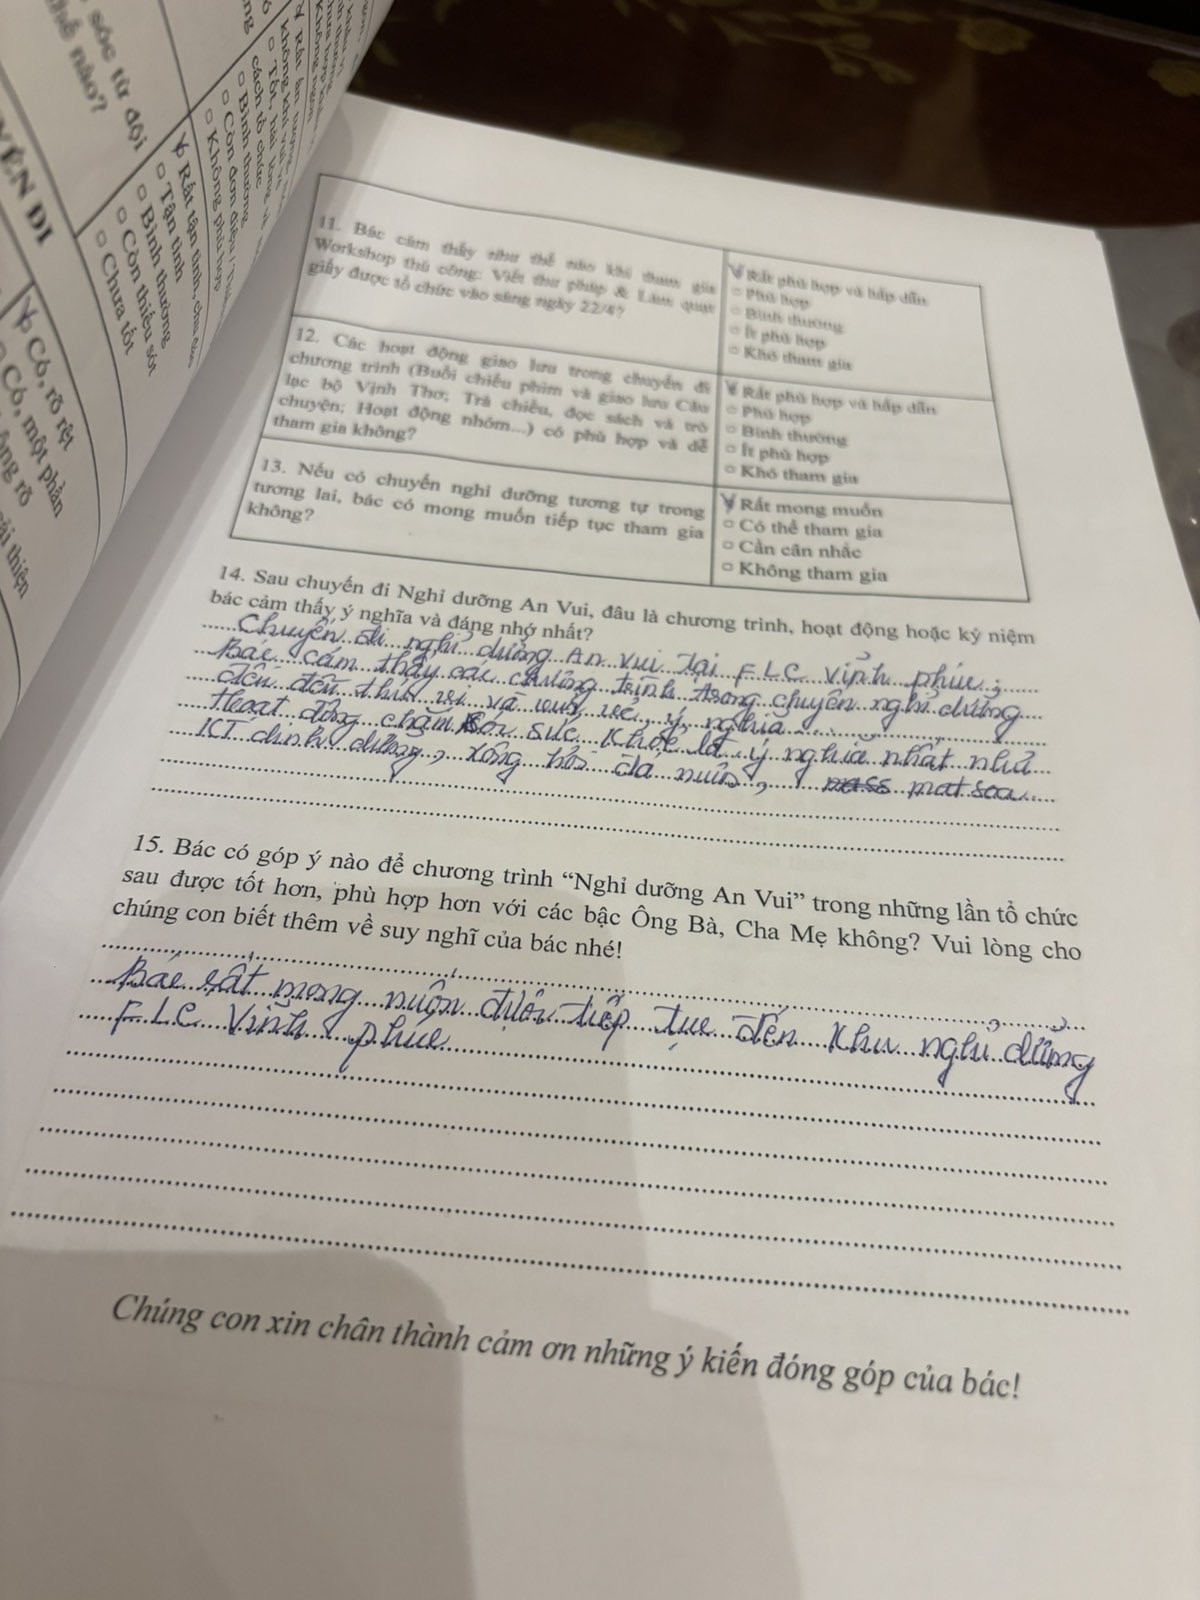 sóc từ đội
thế nào?
YẾN ĐI
Có, rõ rệt
Có, một phần
ông rõ
cải thiện
Rất tận tình, chu đáo
Tận tình
Bình thường
Còn thiếu sót
Chưa tốt
Tốt, hài lòng
cách tổ chức
Bình thường
Còn đơn điệu
Không phù hợp
11. Bác cảm thấy như thế nào khi tham gia
Workshop thủ công: Viết thư pháp & Làm quạt
giấy được tổ chức vào sáng ngày 22/4?
Rất phù hợp và hấp dẫn
Phù hợp
Bình thường
Ít phù hợp
Khó tham gia
12. Các hoạt động giao lưu trong chuyến đi
chương trình (Buổi chiếu phim và giao lưu Câu
lạc bộ Vịnh Thơ; Trà chiều, đọc sách và trò
chuyện; Hoạt động nhóm...) có phù hợp và dễ
tham gia không?
Rất phù hợp và hấp dẫn
Phù hợp
Bình thường
Ít phù hợp
Khó tham gia
13. Nếu có chuyến nghỉ dưỡng tương tự trong
tương lai, bác có mong muốn tiếp tục tham gia
không?
Rất mong muốn
Có thể tham gia
Cần cân nhắc
Không tham gia
14. Sau chuyến đi Nghỉ dưỡng An Vui, đâu là chương trình, hoạt động hoặc kỷ niệm
bác cảm thấy ý nghĩa và đáng nhớ nhất?
Chuyến đi nghỉ dưỡng An Vui tại FLC Vĩnh phúc;
Bác cảm thấy các chương trình trong chuyến nghỉ dưỡng
đều đều thú vị và vui vẻ, ý nghĩa
Hoạt động chăm sóc sức khoẻ là ý nghĩa nhất như
KT dinh dưỡng, xông hơi đá muối, mát soa
15. Bác có góp ý nào để chương trình “Nghỉ dưỡng An Vui” trong những lần tổ chức
sau được tốt hơn, phù hợp hơn với các bậc Ông Bà, Cha Mẹ không? Vui lòng cho
chúng con biết thêm về suy nghĩ của bác nhé!
Bác rất mong muốn được tiếp tục đến khu nghỉ dưỡng
FLC Vĩnh phúc
Chúng con xin chân thành cảm ơn những ý kiến đóng góp của bác!